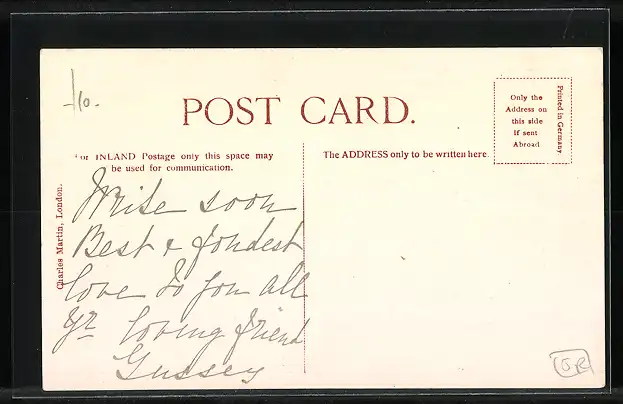 -/10.
POST CARD.
For INLAND Postage only this space may
be used for communication.
The ADDRESS only to be written here.
Only the
Address on
this side
if sent
Abroad
Printed in Germany.
Charles Martin, London.
Write soon
Best & fondest
love to you all
yr loving friend
Gussey